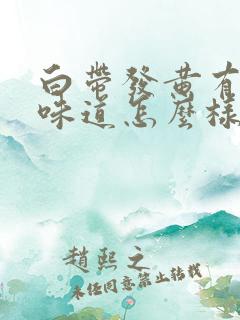 白帶發黃有
味道怎麼樣
趙熙之
未經同意禁止轉載